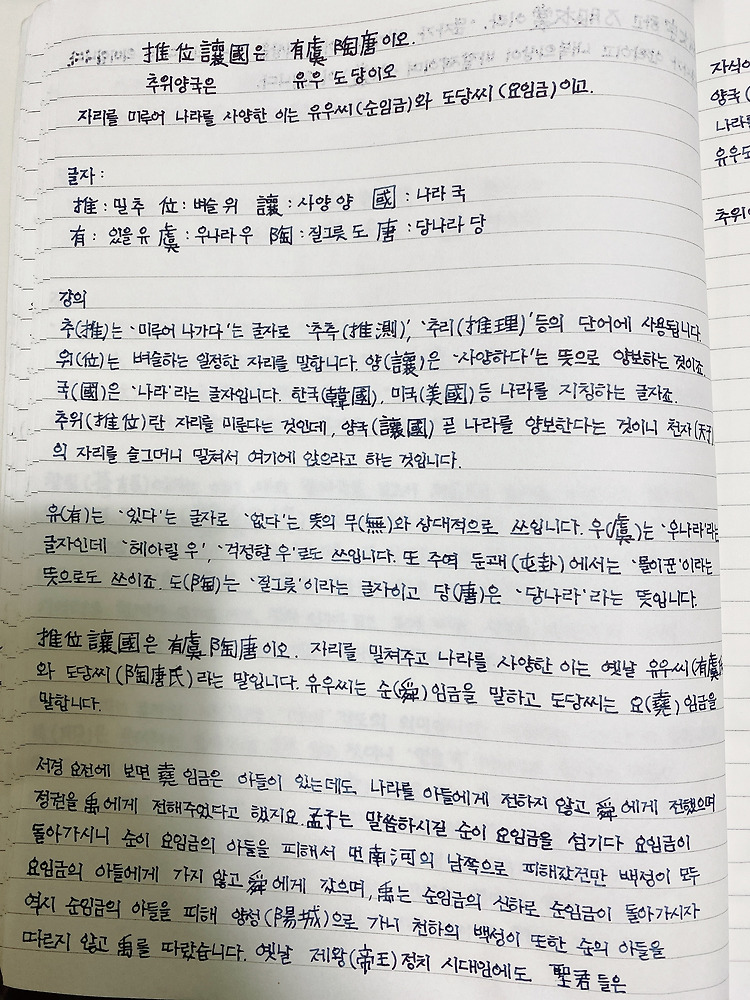 推位讓國은 有虞陶唐이오.
추위양국은 유우도당이오
자리를 미루어 나라를 사양한 이는 유우씨(순임금)와 도당씨(요임금)이고.
글자:
推: 밀 추 位: 벼슬 위 讓: 사양 양 國: 나라 국
有: 있을 유 虞: 우나라 우 陶: 질그릇 도 唐: 당나라 당
강의
추(推)는 '미루어 나가다'는 글자로 '추측(推測)', '추리(推理)'등의 단어에 사용됩니다.
위(位)는 벼슬하는 일정한 자리를 말합니다. 양(讓)은 '사양하다'는 뜻으로 양보하는 것이죠.
국(國)은 '나라'라는 글자입니다. 한국(韓國), 미국(美國)등 나라를 지칭하는 글자죠.
추위(推位)란 자리를 미룬다는 것인데, 양국(讓國) 곧 나라를 양보한다는 것이니 천자(天子)
의 자리를 슬그머니 밀쳐서 여기에 앉으라고 하는 것입니다.
유(有)는 '있다'는 글자로 '없다'는 뜻의 무(無)와 상대적으로 쓰입니다. 우(虞)는 '우나라'라는
글자인데 '헤아릴 우', '걱정할 우'로도 쓰입니다. 또 주역 둔괘(屯卦)에서는 '몰이꾼'이라는
뜻으로도 쓰이죠. 도(陶)는 '질그릇'이라는 글자이고 당(唐)은 '당나라'라는 뜻입니다.
推位讓國은 有虞陶唐이오. 자리를 밀쳐주고 나라를 사양한 이는 옛날 유우씨(有虞
와 도당씨(陶唐氏)라는 말입니다. 유우씨는 순(舜)임금을 말하고 도당씨는 요(堯)임금을
말합니다.
서경 요전에 보면 堯임금은 아들이 있는데도 나라를 아들에게 전하지 않고 舜에게 전했으며
정권을 禹에게 전해주었다고 했지요. 孟子는 말씀하시길 순이 요임금을 섬기다 요임금이
돌아가시니 순이 요임금의 아들을 피해서 먼 南河의 남쪽으로 피해갔건만 백성이 모두
요임금의 아들에게 가지 않고 舜에게 갔으며, 禹는 순임금의 신하로 순임금이 돌아가시자
역시 순임금의 아들을 피해 양성(陽城)으로 가니 천하의 백성이 또한 순의 아들을
따르지 않고 禹를 따랐습니다. 옛날 제왕(帝王)정치 시대임에도 聖君들은
자식이
양국(
나라를
유우도
추위